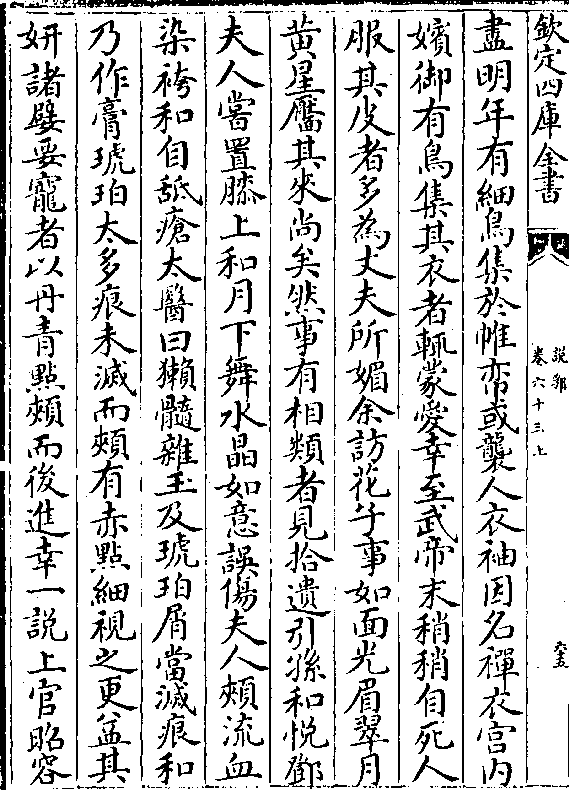 欽定四庫全書
說郛
卷六十三上
盡明年有細鳥集於帷帟或襲人衣袖因名襌衣宫内
嬪御有鳥集其衣者輙蒙愛幸至武帝末稍稍自死人
服其皮者多為丈夫所媚余訪花子事如面光眉翠月
黄星靨其來尚矣然事有相類者見拾遺引孫和悦鄧
夫人嘗置膝上和月下舞水晶如意誤傷夫人頰流血
染袴和自舐瘡太醫曰獺髓雜玉及琥珀屑當滅痕和
乃作膏琥珀太多痕未滅而頰有赤點細視之更益其
妍諸嬖妾寵者以丹青點頰而後進幸一説上官昭容